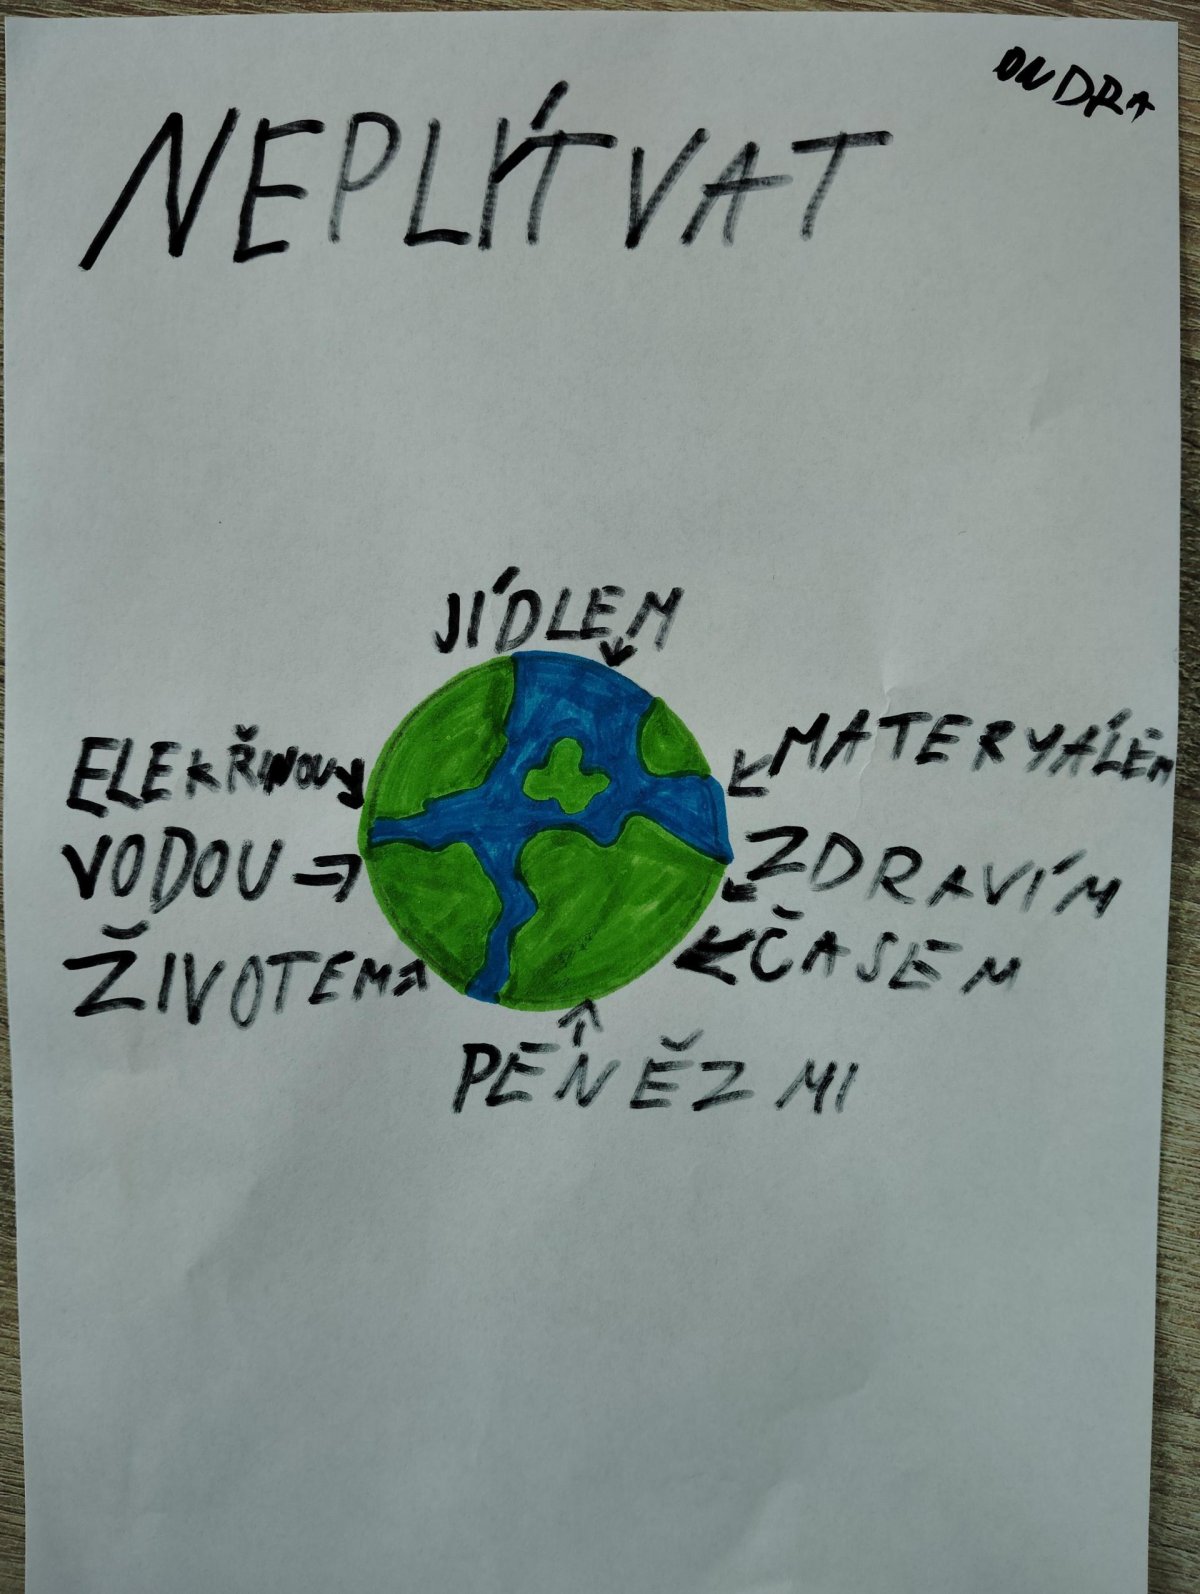 ONDRA
NEPLÝTVAT
JÍDLEM
MATERYÁLEM
ELEKŘINOU
VODOU
ZDRAVÍM
ČASEM
ŽIVOTEM
PENĚZMI